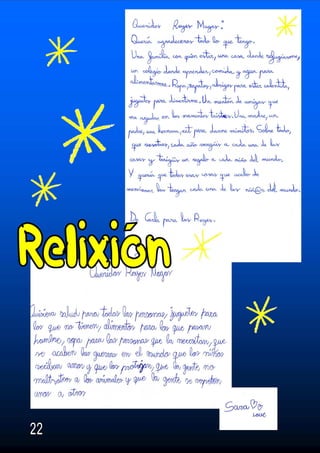 Queridos Reyes Magos:
Quería agradeceros todo lo que tengo.
Una familia con quién estar, una casa donde refugiarme,
un colegio donde aprender, comida y agua para
alimentarme. Ropa, zapatos, abrigos para estar calentita,
juguetes para divertirme. Un montón de amigos que
me ayudan en los momentos tristes. Una madre, un
padre, una hermana, est para darme mimitos. Sobre todo,
que vosotros, cada año vengáis a cada una de las
casas y traigáis un regalo a cada niño del mundo.
Y quería que todas esas cosas que acabo de
mencionar, las tengan cada una de los niñ@s del mundo.
De Carla para los Reyes.
Relixión
Queridos Reyes Magos
Quisiera salud para todas las personas, juguetes para
los que no tienen, alimentos para los que pasan
hambre, ropa para las personas que la necesitan, que
se acaben las guerras en el mundo que los niños
reciban amor y que los protejan, que la gente no
maltraten a los animales y que la gente se respeten
unos a otros
Sara
love
22